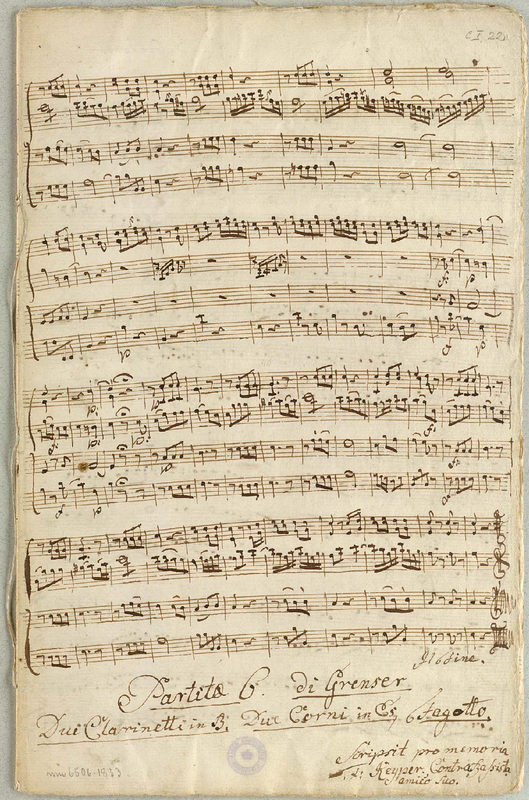 C I 22
Il Fine.
Partita 6. di Grenser
Due Clarinetti in B, Due Corni in Es, e Fagotto.
Scripsit pro memoria
Keyper. Contrabassista
amico suo.